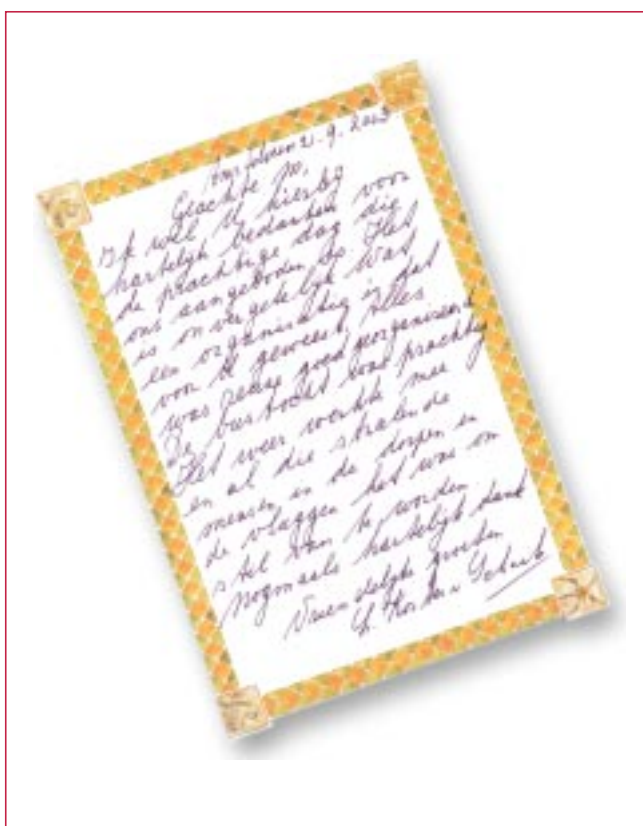 21.9.2003
Geachte M,
Ik wil U hierbij
hartelijk bedanken voor
de prachtige dag die
ons aangeboden is Het
is onvergetelijk wat
een organisatie is dat
voor U geweest, Alles
was reuse goed georganiseerd
De bustocht was prachtig
Het weer werkte mee
en al die stralende
mensen in de dorpen en
de vlaggen het was om
stil van te worden
nogmaals hartelijk dank
Vriendelijke groeten